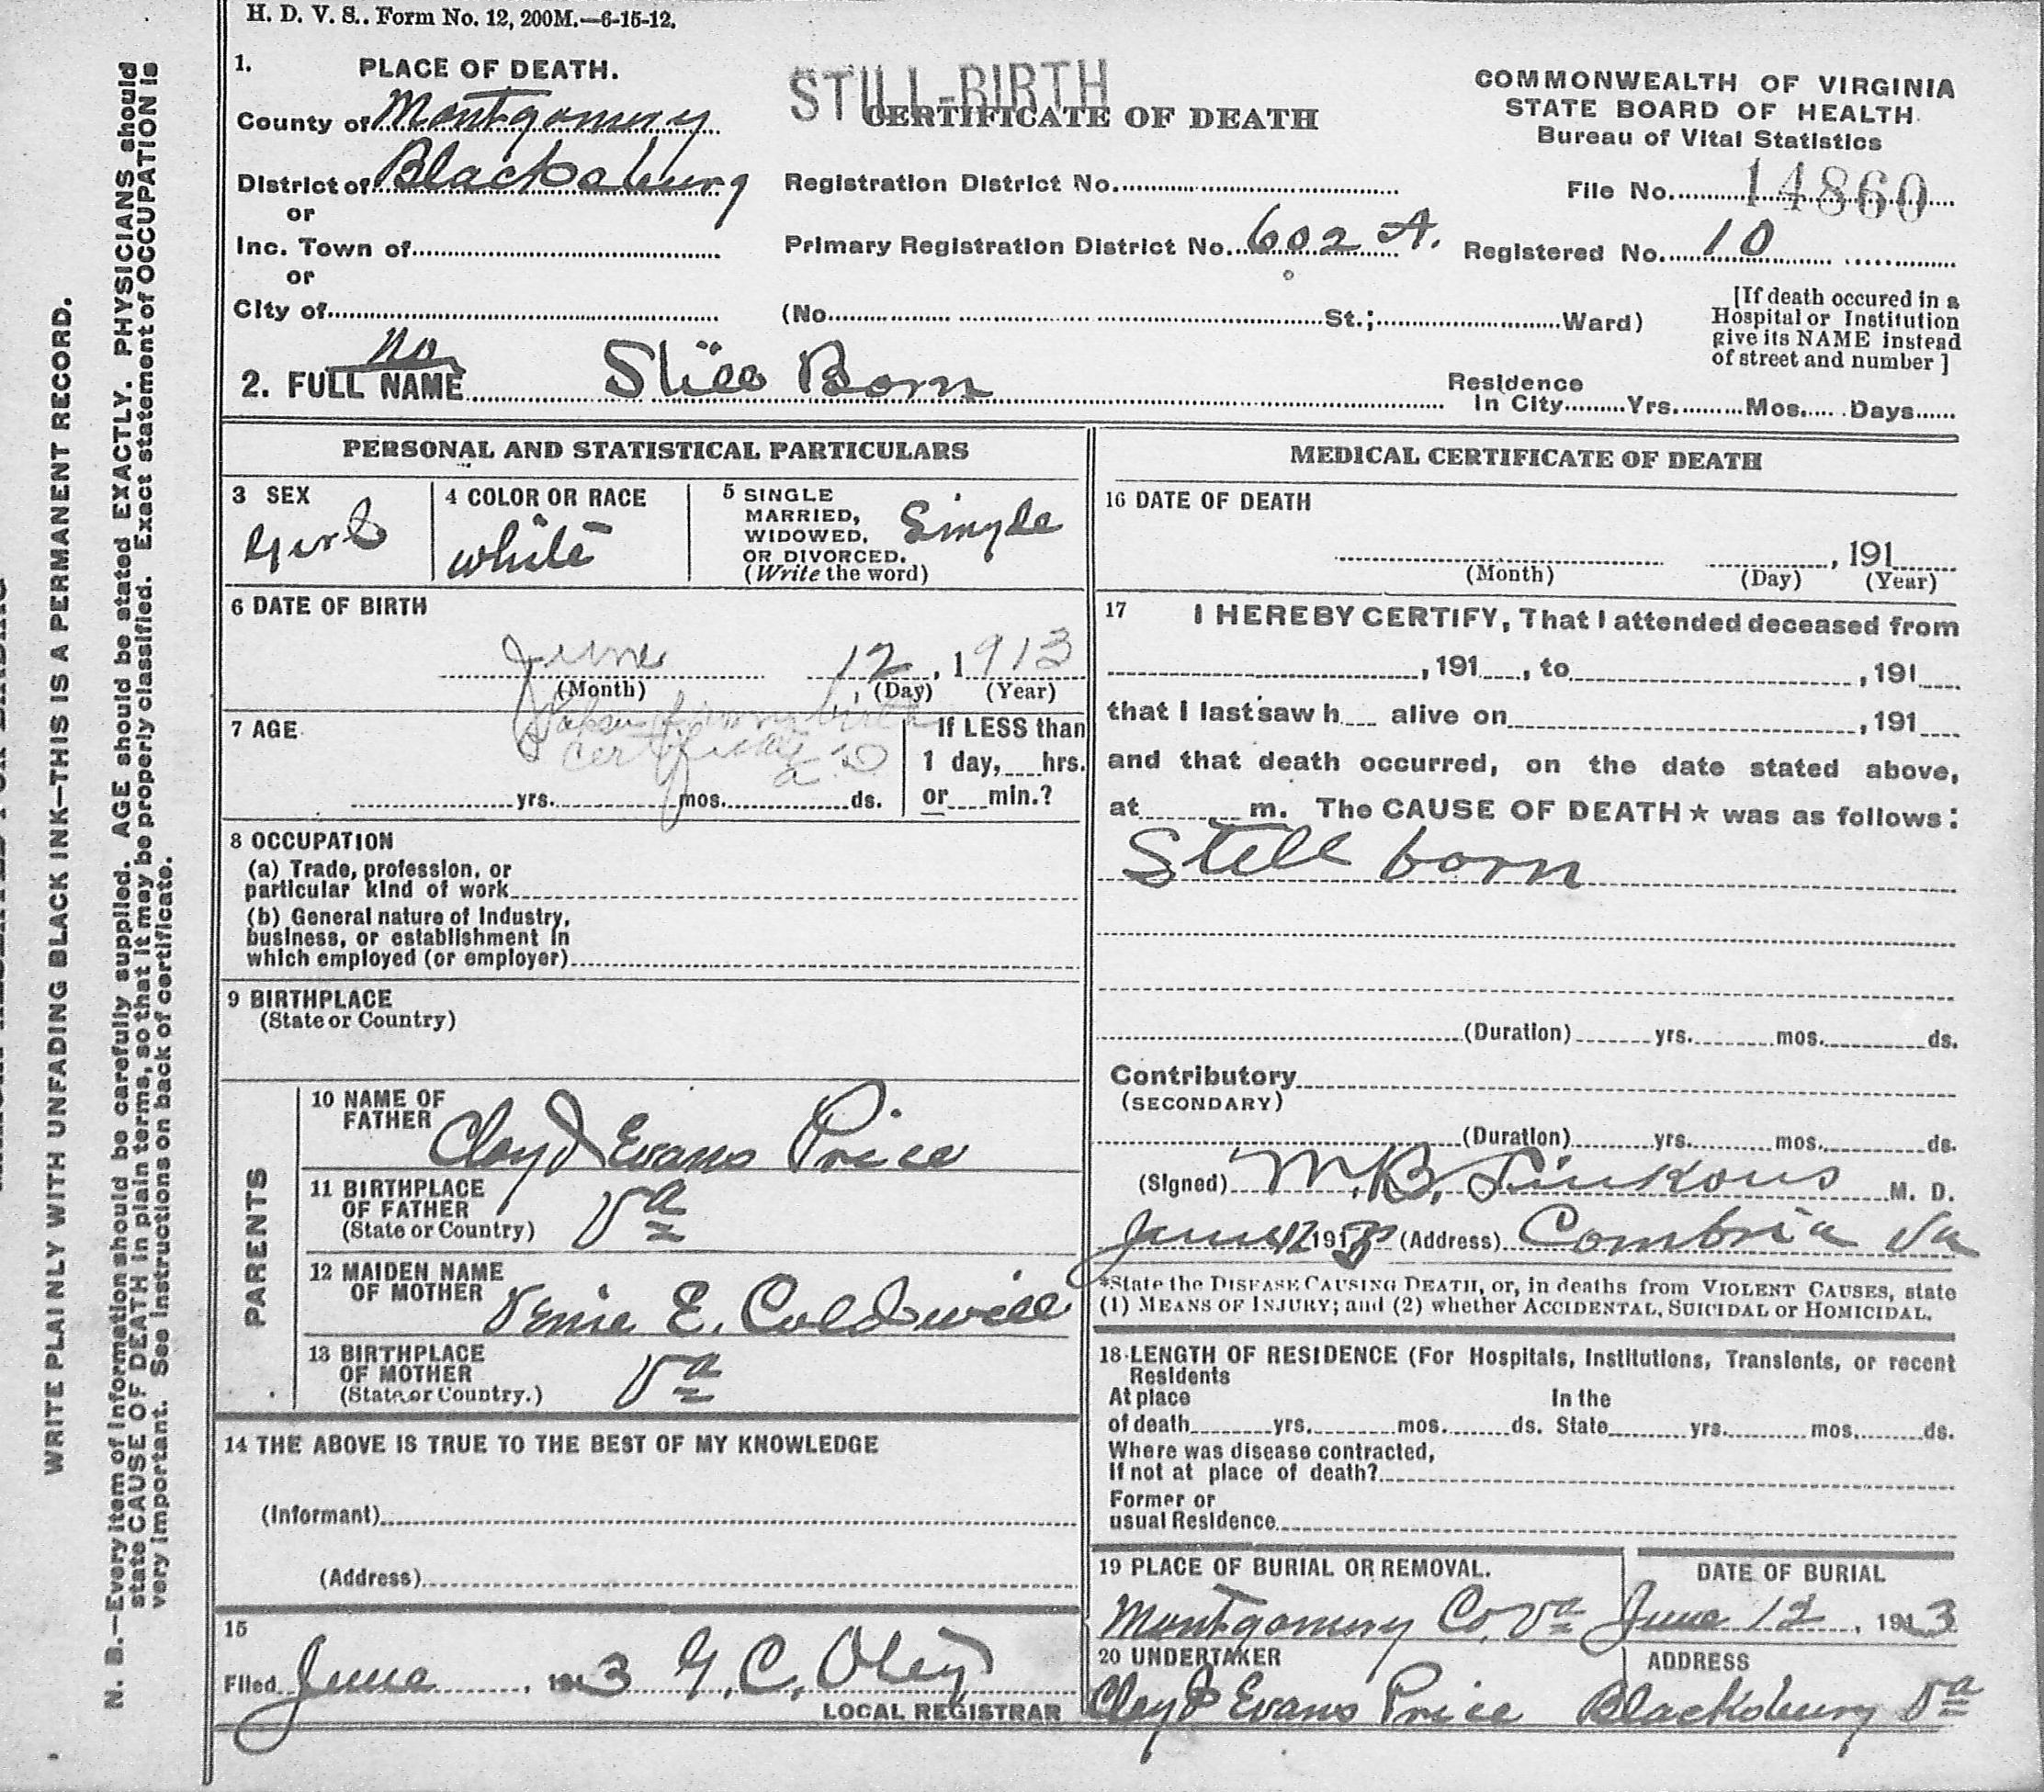 H. D. V. S.. Form No. 12, 200M.—6-15-12.
1. PLACE OF DEATH.
County of Montgomery
District of Blacksburg
or
Inc. Town of
or
City of
STILL-BIRTH
CERTIFICATE OF DEATH
Registration District No.
Primary Registration District No. 602 A.
(No. St.; Ward)
COMMONWEALTH OF VIRGINIA
STATE BOARD OF HEALTH.
Bureau of Vital Statistics
File No. 14860
Registered No. 10
[If death occured in a
Hospital or Institution
give its NAME instead
of street and number ]
no
2. FULL NAME Still Born
Residence
in City Yrs. Mos. Days
PERSONAL AND STATISTICAL PARTICULARS
3 SEX
Girl
4 COLOR OR RACE
White
5 SINGLE
MARRIED,
WIDOWED,
OR DIVORCED.
(Write the word)
Single
6 DATE OF BIRTH
June 12, 1913
(Month) (Day) (Year)
Taken from birth
certificate
7 AGE
yrs. mos. ds.
If LESS than
1 day, hrs.
or min.?
8 OCCUPATION
(a) Trade, profession, or
particular kind of work
(b) General nature of Industry,
business, or establishment in
which employed (or employer)
9 BIRTHPLACE
(State or Country)
PARENTS
10 NAME OF
FATHER
Cloyd Evans Price
11 BIRTHPLACE
OF FATHER
(State or Country)
Va
12 MAIDEN NAME
OF MOTHER
E. Coldwell
13 BIRTHPLACE
OF MOTHER
(State or Country.)
Va
14 THE ABOVE IS TRUE TO THE BEST OF MY KNOWLEDGE
(Informant)
(Address)
15
Filed June, 1913 G. C. Oley
LOCAL REGISTRAR
MEDICAL CERTIFICATE OF DEATH
16 DATE OF DEATH
, 191
(Month) (Day) (Year)
17 I HEREBY CERTIFY, That I attended deceased from
, 191 , to , 191
that I last saw h alive on , 191
and that death occurred, on the date stated above,
at m. The CAUSE OF DEATH★ was as follows:
Still born
(Duration) yrs. mos. ds.
Contributory
(SECONDARY)
(Duration) yrs. mos. ds.
(Signed) M. B. Linkous M. D.
June 12 1913 (Address) Combria Va
*State the DISEASE CAUSING DEATH, or, in deaths from VIOLENT CAUSES, state
(1) MEANS OF INJURY; and (2) whether ACCIDENTAL, SUICIDAL or HOMICIDAL.
18 LENGTH OF RESIDENCE (For Hospitals, Institutions, Transients, or recent
Residents
At place In the
of death yrs. mos. ds. State yrs. mos. ds.
Where was disease contracted,
If not at place of death?
Former or
usual Residence
19 PLACE OF BURIAL OR REMOVAL.
Montgomery Co. Va
DATE OF BURIAL
June 12, 1913
20 UNDERTAKER
Cloyd Evans Price
ADDRESS
Blacksburg Va
WRITE PLAINLY WITH UNFADING BLACK INK—THIS IS A PERMANENT RECORD.
N. B.—Every item of Information should be carefully supplied. AGE should be stated EXACTLY. PHYSICIANS should
state CAUSE OF DEATH in plain terms, so that it may be properly classified. Exact statement of OCCUPATION is
very important. See instructions on back of certificate.